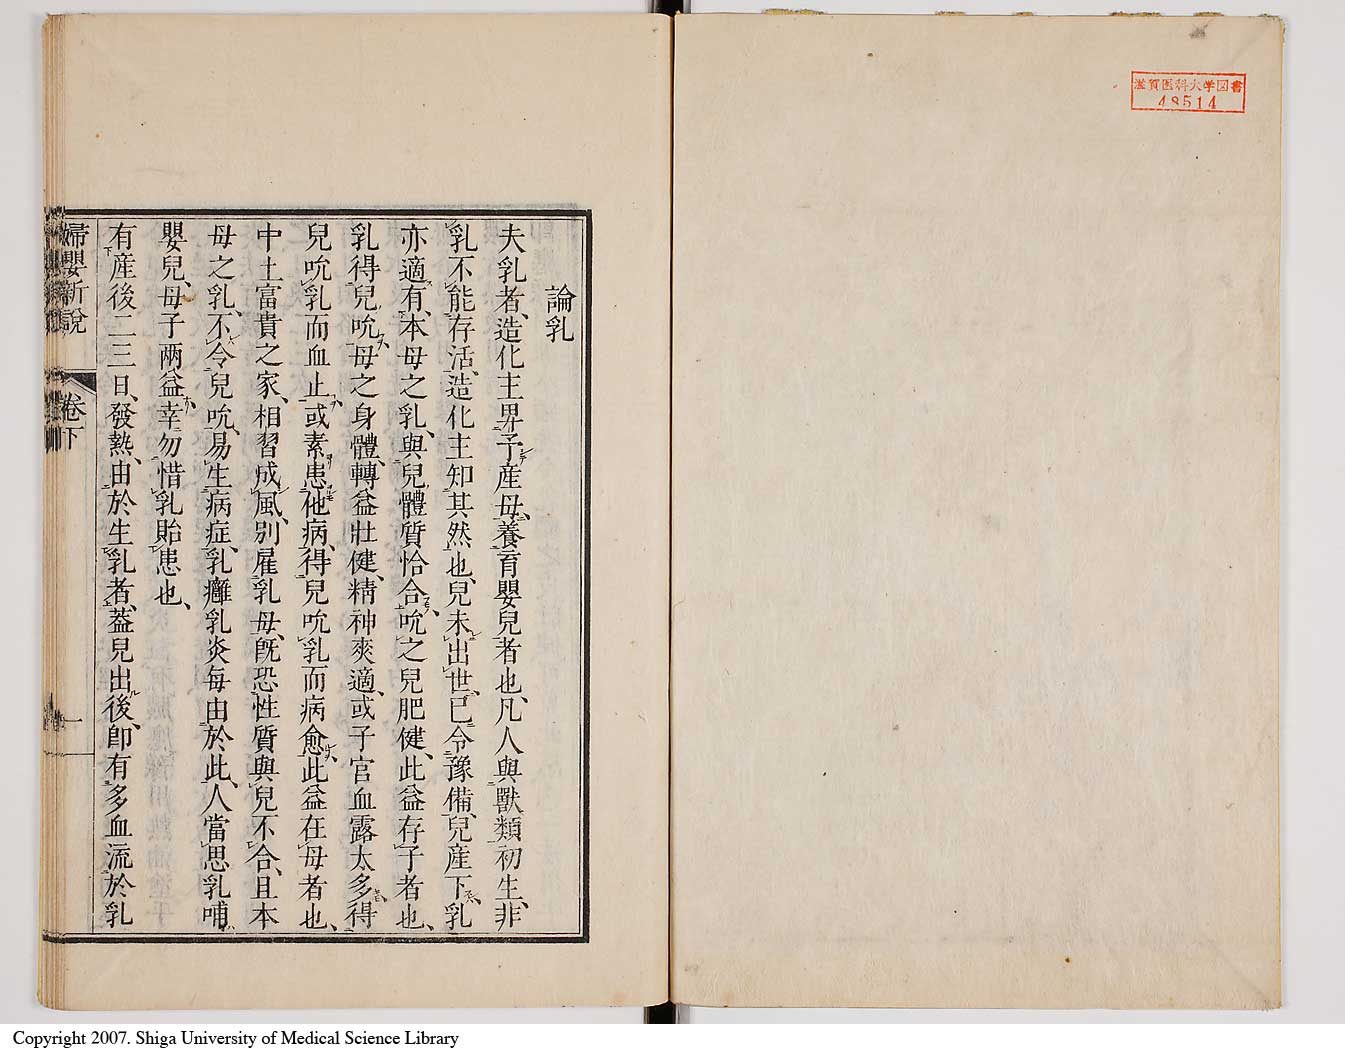 滋賀医科大学図書
48514
論乳
夫乳者、造化主畀予産母、養育嬰兒者也、凡人與獸類初生、非
乳不能存活、造化主知其然也、兒未出世、已令豫備、兒産下、乳
亦適有、本母之乳、與兒體質恰合、吮之兒肥健、此益存子者也、
乳得兒吮、母之身體、轉益壯健、精神爽適、或子宮血露太多、得
兒吮乳而血止、或素患他病、得兒吮乳而病愈、此益在母者也、
中土富貴之家、相習成風、別雇乳母、旣恐性質與兒不合、且本
母之乳、不令兒吮、易生病症、乳癰乳炎每由於此、人當思乳哺
嬰兒、母子兩益、幸勿惜乳貽患也、
有産後二三日、發熱、由於生乳者、葢兒出後、卽有多血流於乳
婦嬰新說
卷下
一
Copyright 2007. Shiga University of Medical Science Library